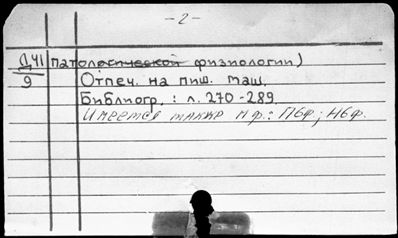 -2-
Д41 патологической физиологии)
9 Отпеч. на пиш. маш.
Библиогр. : л. 270-289.
Имеется также мф.: П6ф; Н6ф.